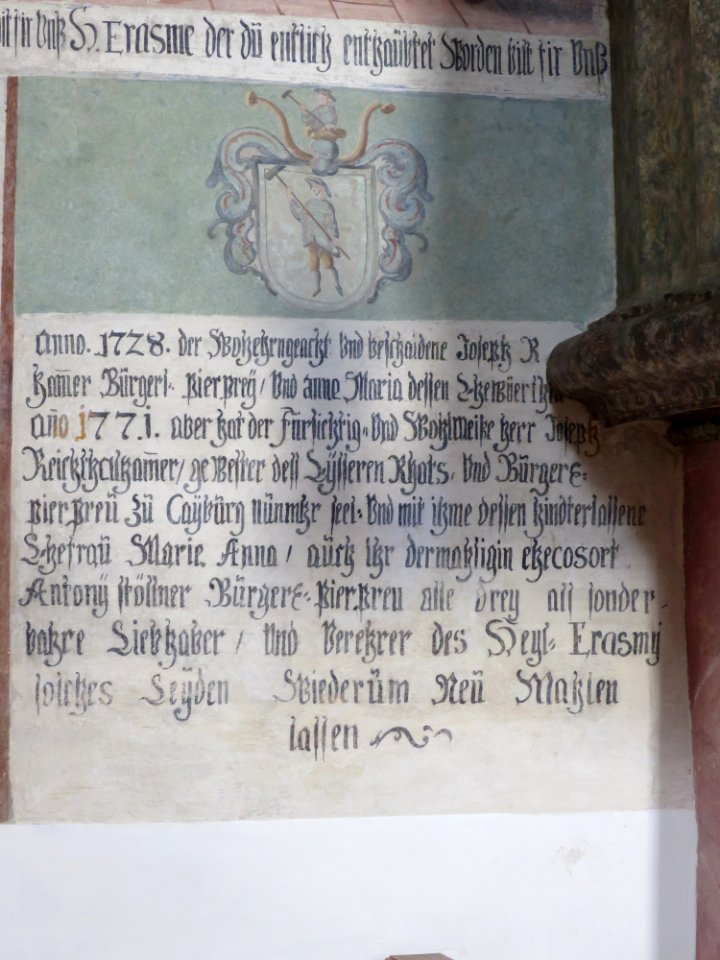 bit fir Vnß S. Erasme der dü entlich enthaübtet Worden bitt fir Vnß
Anno. 1728. der Wohehrngeacht Vnd beschaidene Joseph R
ham̅er Bürgerl. pierprey/ Vnd anna Maria dessen
an̅o 1771. aber hat der Fürsichtig= Vnd Wohlweise herr Joseph
ge Wester dess Eÿsseren Rhats. Vnd Bürgers=
pierpreü zü Cayburg nünmehr seel. Vnd mit ihme dessen hindterlassene
Ehefraü Marie Anna / aüch Ihr dermahligin ehecosort
Antonÿ stöllner Bürgers=pierpreu alle drey als sonder=
bahre Liebhaber / Vnd Verehrer des Heyl= Erasmÿ
solches Leÿden Wiederüm Neü Mahlen
lassen